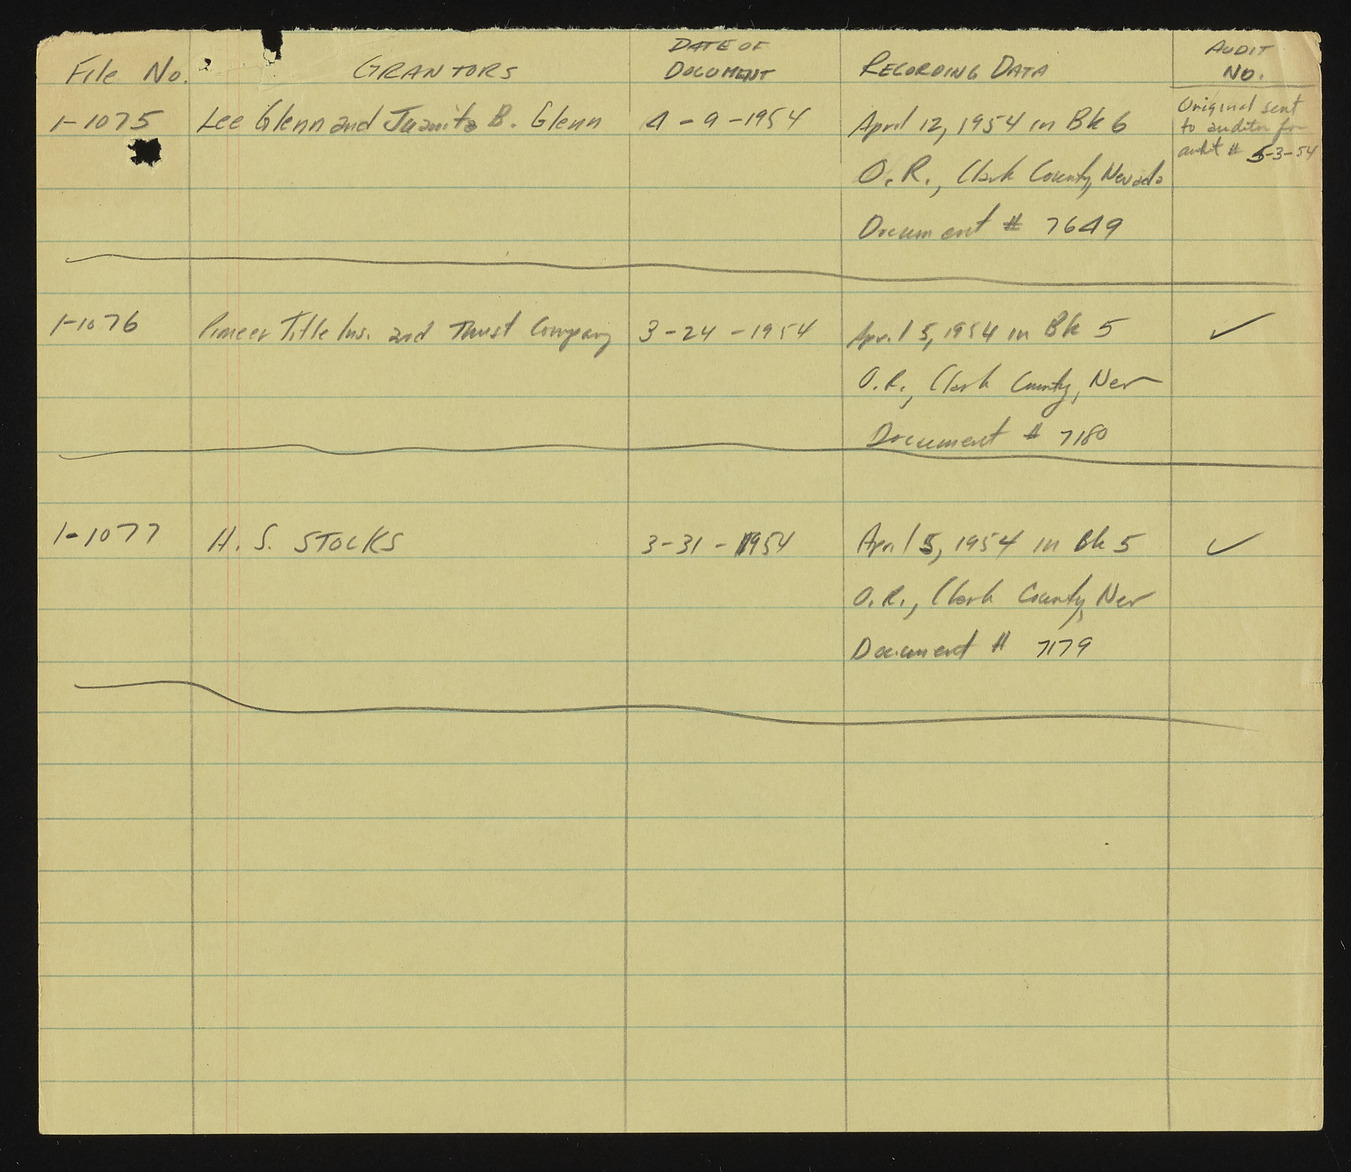 File No. GRANTORS DATE OF DOCUMENT RECORDING DATA AUDIT NO.
1-1075 Lee Glenn and Juanita B. Glenn 4-9-1954 April 12, 1954 in Bk 6 Original sent
to auditor for
O.R., Clark County, Nevada audit # 5-3-54
Document # 7649
1-1076 Pioneer Title Ins. and Trust Company 3-24-1954 April 5, 1954 in Bk 5 ✓
O.R., Clark County, Nev
Document # 7180
1-1077 H. S. STOCKS 3-31-1954 April 5, 1954 in Bk 5 ✓
O.R., Clark County, Nev
Document # 7179